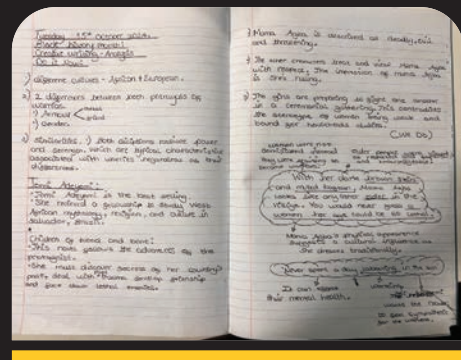 Tuesday 15th October 2024.
Black history month!
Creative writing - Analysis
Do it Now!
1) different cultures - African + European.
2) 2 differences between both protrayes of
warriors.
1) Armour
2) Genders
3) Similarities: 1) Both
power
and strength, which are typical characteristic
associated with warriors regardless as the
differences.
Tomi Adeyemi:
Tomi Adeyemi is the best selling.
She received a fellowship to study West
African mythology, religion, and culture in
Salvador, Brazil.
Children of blood and bone:
This novel follows the adventures of the
protagist.
She must discover secrets of her country's
past, deal with trauma, develop friendship
and face down lethal enemies.
1) Mama Agba is described as deadly, evil
and threatening.
2) The other characters listen and view Mama Agba
with respect. The intention of mama Agba
is still ruling.
3) The girls are preparing to fight one another
in a ceremonial gathering. This contradicts
the stereotype of women being weak and
bound for household duties.
women were not
With her dark brown skin
and muted kaftan, Mama Agba
looks like any other elder in the
village. You would never guess a
woman her age could be so lethal.
Mama Agba's physical appearance
suggests a cultural influence as
she dresses traditionally.
Never spent a day
in the sun
It can
their mental health.